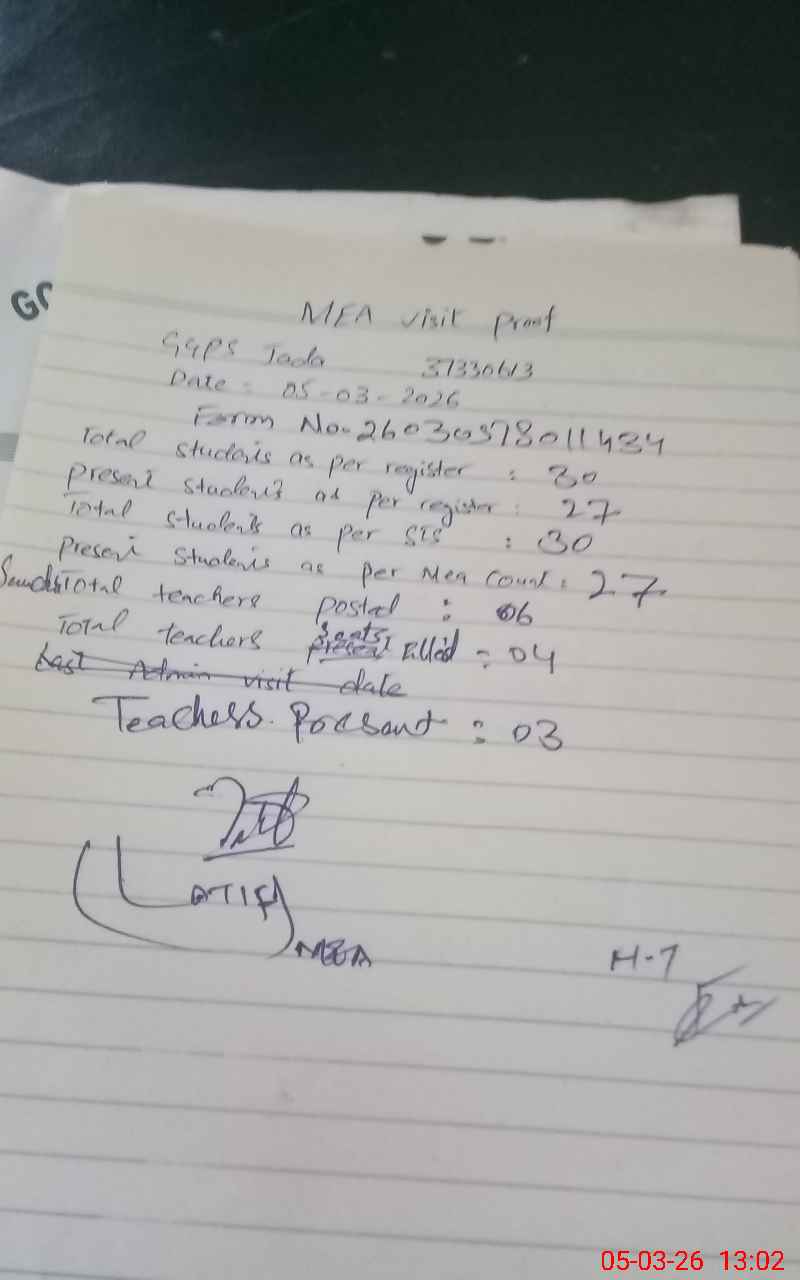 MEA visit proof
GGPS Jada 37330613
Date = 05-03-2026
Form No. 26030578011434
Total students as per register : 30
present students as per register : 27
Total students as per SIS : 30
present Students as per Mea Count : 27
Total teachers posted : 06
Total teachers Seats present Filled = 04
Last Admin visit date
Teachers. Present : 03
LATIF
MEA
H-7
05-03-26 13:02